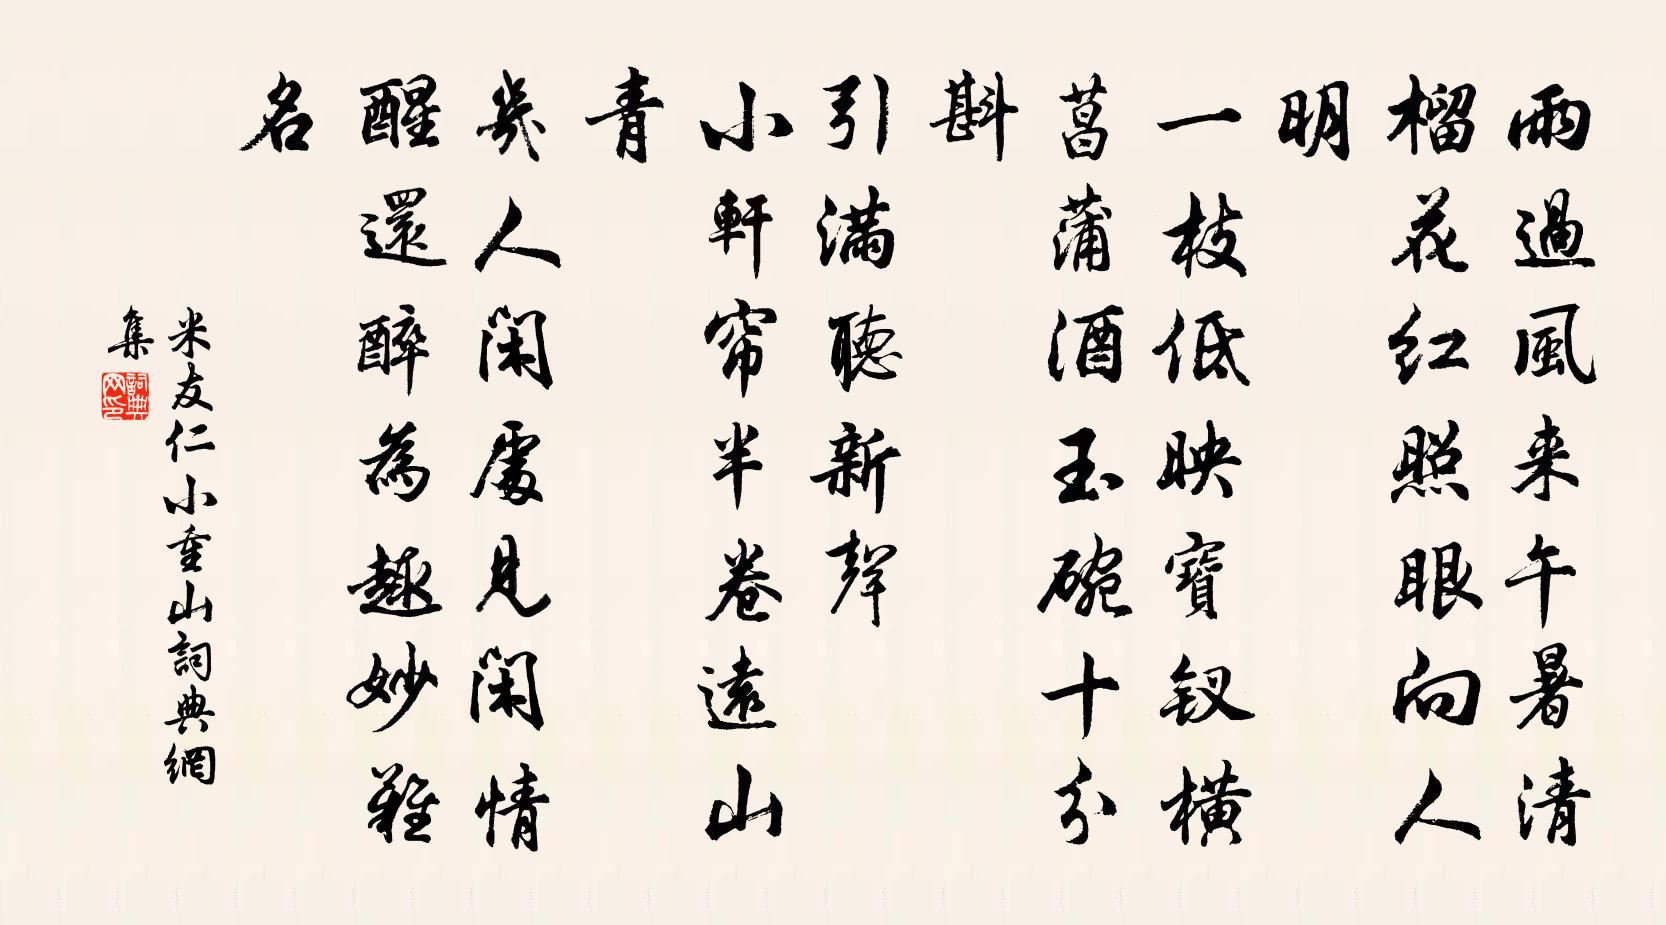 雨過風来午暑清
榴花红照眼向人
明
一枝低映寶釵横
菖蒲酒玉碗十分
斟
引滿聽新聲
小軒帘半卷遠山
青
幾人闲處見闲情
醒還醉為趣妙難
名
米友仁小重山詞典網
集
詞典网印